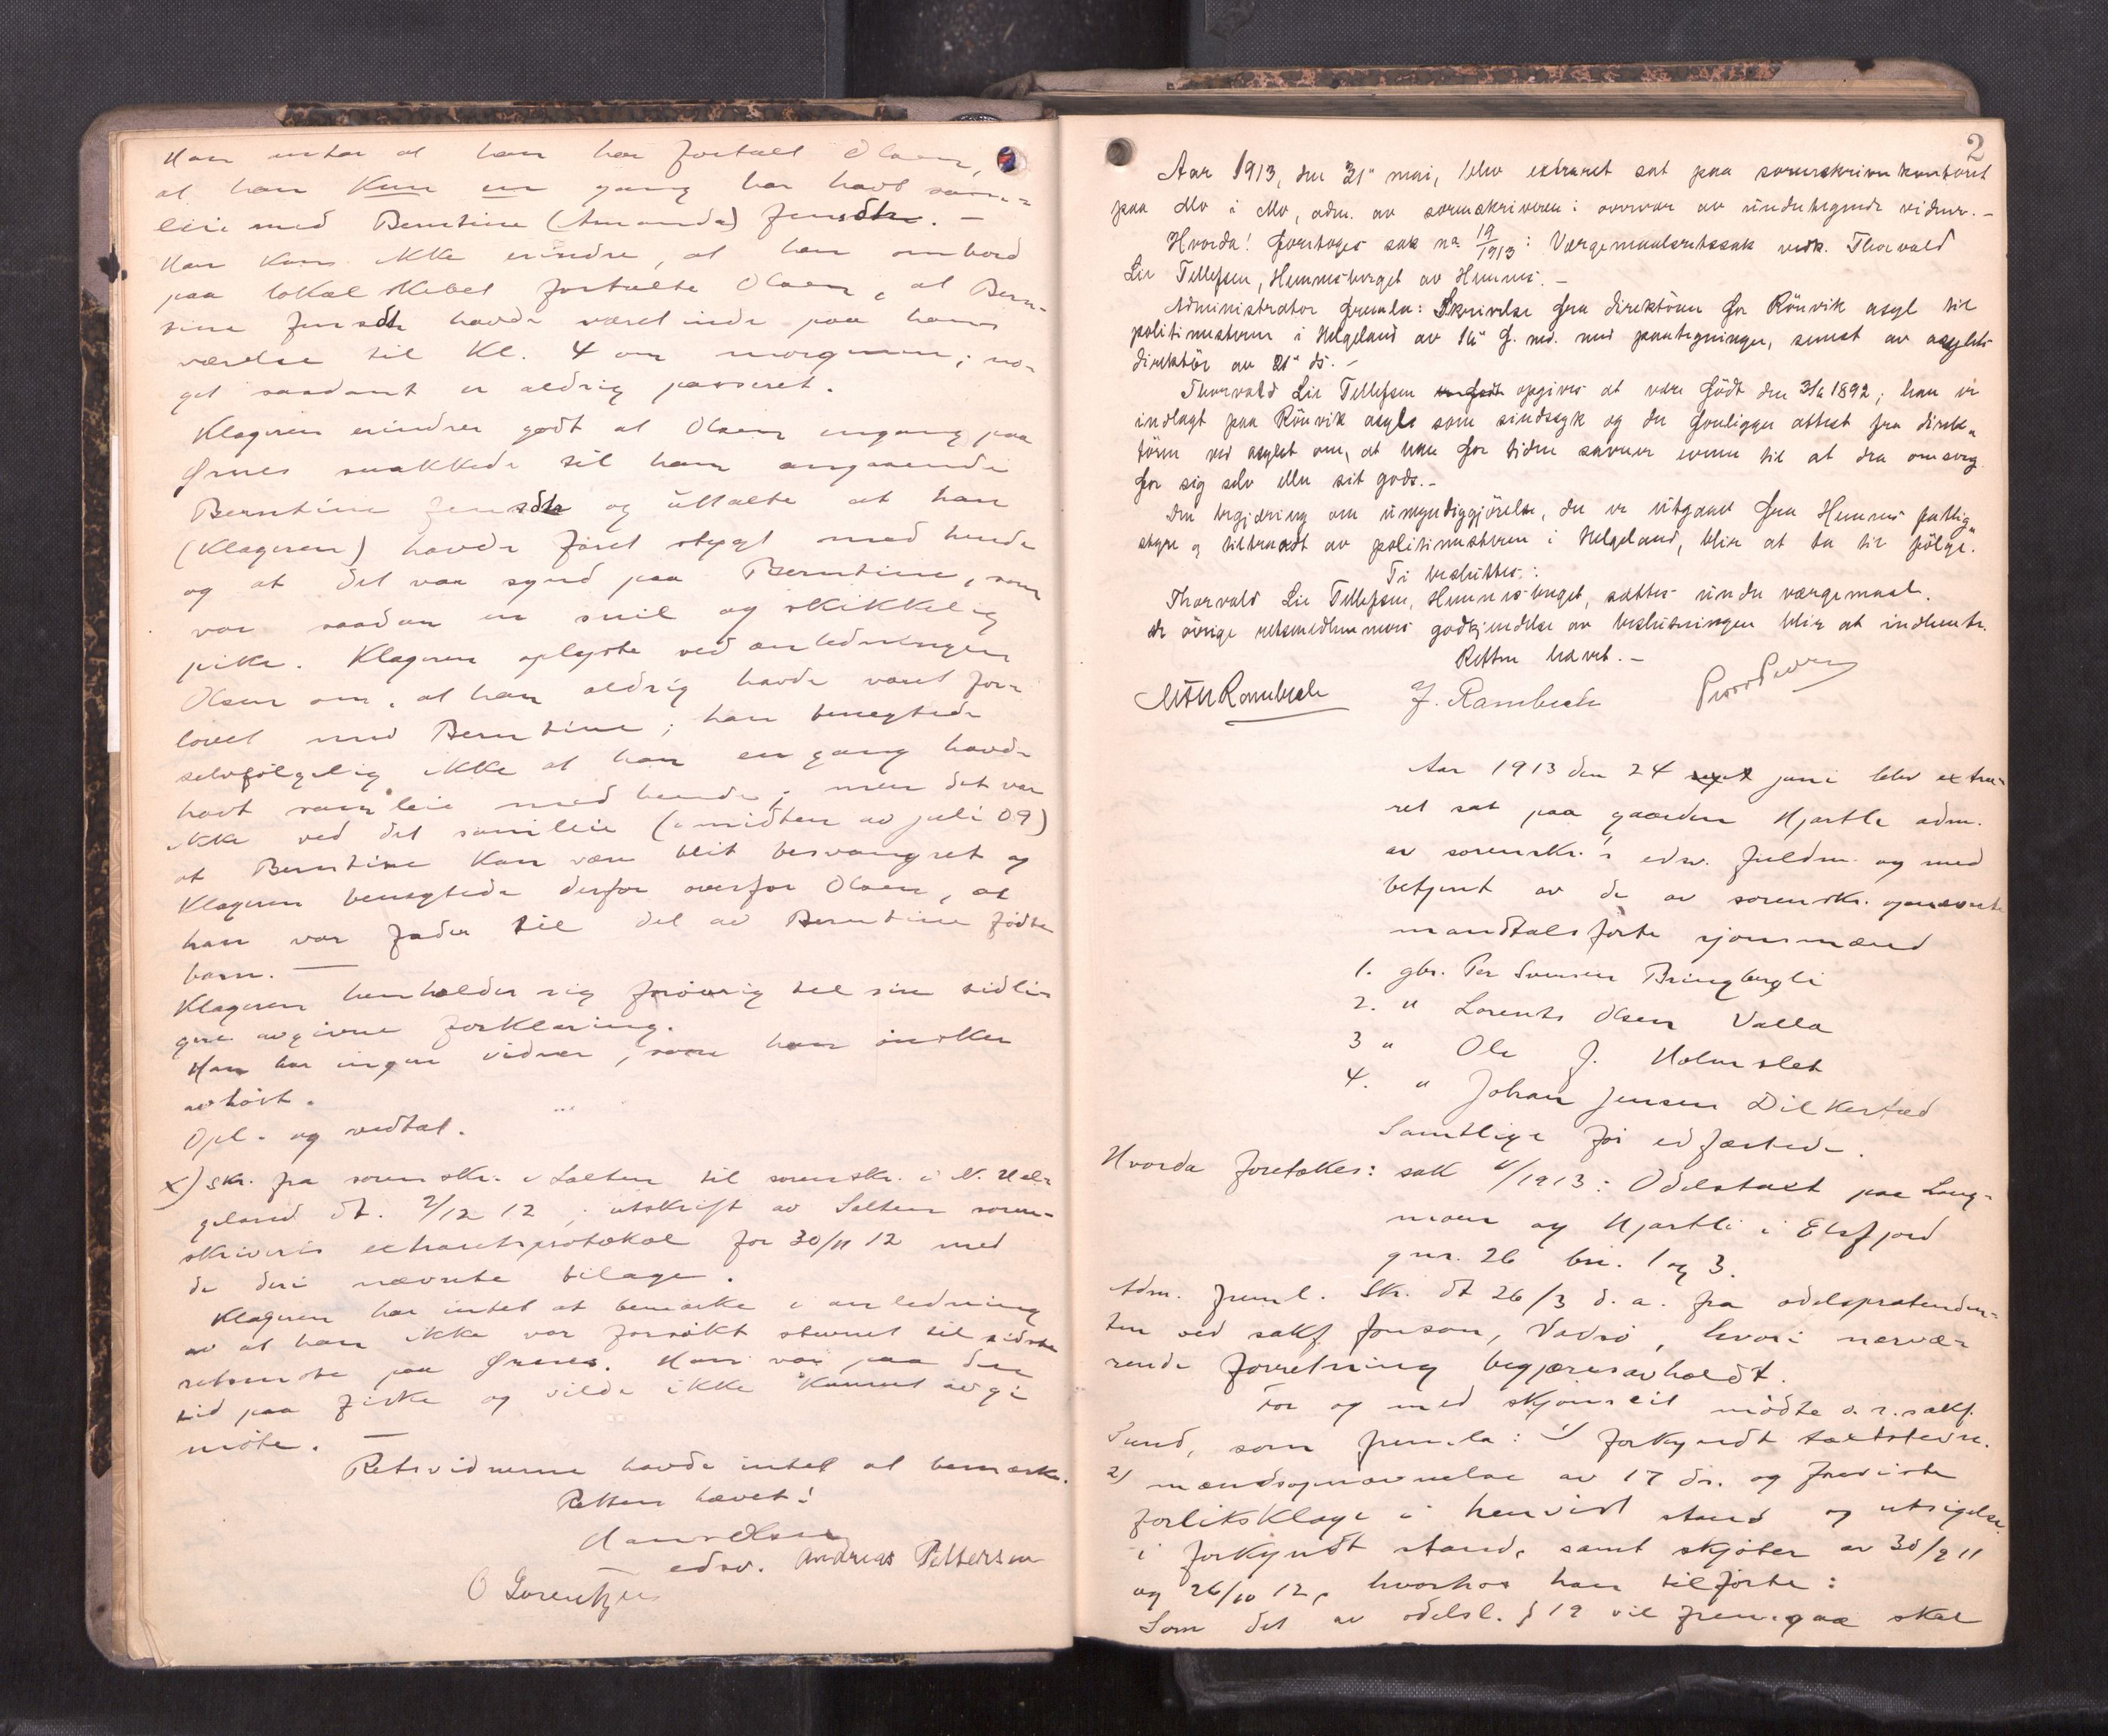 Han antar at han har fortalt Olsen,
at han kun en gang har havt sam-
leie med Berntine (Amanda) Jensdtr. -
Han kan ikke erindre, at han ombord
paa lokalskibet fortalte Olsen, at Bern-
tine Jensdtr havde været inde paa hans
værelse til kl. 4 om morgenen; no-
get saadant er aldrig passeret.
Klageren erindrer godt at Olsen engang paa
Ørnes snakkede til ham angaaende
Berntine Jensdtr og uttalte at han
(Klageren) havde faret stygt med hende
og at det var synd paa Berntine, som
var saadan en snil og skikkelig
pike. Klageren oplyste ved anledningen
Olsen om, at han aldrig havde været for-
lovet med Berntine; han benegtede
selvfølgelig ikke at han en gang havde
havt samleie med hende; men det var
ikke ved det samleie (i midten av juli 09)
at Berntine kan være blit besvangret og
Klageren benegtede derfor overfor Olsen, at
han var fader til det av Berntine fødte
barn. —
Klageren henholder sig forøvrig til sin tidli-
gere avgivne forklaring.
Han har ingen vidner, som han ønsker
avhørt.
Opl. og vedtat.
x) Skr. fra sorenskr. i Salten til sorenskr. i N. Hel-
geland dt. 2/12 12; utskrift av Salten soren-
skriveris extraretsprotokol for 30/11 12 med
de deri nævnte bilage.
Klageren har intet at bemærke i anledning
av at han ikke var forsøkt stevnet til sidste
retsmøte paa Ørnes. Han var paa den
tid paa fiske og vilde ikke kunnet avgi
møte. —
Retsvidnerne havde intet at bemærke.
Retten hævet!
Hans Olsen
edsv.
Andreas Pettersen
O Lorentzen
2
Aar 1913, den 31' mai, blev extraret sat paa sorenskriverkontoret
paa Mo i Mo, adm. av sorenskriveren i overvær av undertegnede vidner. -
Hvorda! Foretoges sak no 19/1913: Værgemaalsretssak vedk. Thorvald
Lie Tellefsen, Hemnesberget av Hemnes. -
Administrator fremla: Skrivelse fra direktøren for Rönvik asyl til
politimesteren i Helgeland av 16' f. md. med paategninger, senest av asylets
direktör av 21' ds. -
Thorvald Lie Tellefsen opgives at være födt den 3/6 1892; han er
indlagt paa Rönvik asyl som sindssyk og der foreligger attest fra direk-
tören ved asylet om, at han for tiden savner evne til at dra omsorg
for sig selv eller sit gods. -
Den begjæring om umyndiggjörelse, der er utgaat fra Hemnes fattig-
styre og tiltraadt av politimesteren i Helgeland, blir at ta til fölge.
Ti besluttes:
Thorvald Lie Tellefsen, Hemnesberget, sættes under værgemaal.
De övrige retsmedlemmers godkjendelse av beslutningen blir at indhente.
Retten hævet. -
Rambech
J. Rambech
Aar 1913 den 24 juni blev extra-
ret sat paa gaarden Hjartli adm.
av sorenskr.'s edsv. fuldm. og med
betjent av de av sorenskr. opnævnte
mandtalsførte sjønsmænd
1. gbr. Per Svensen Bringbergli
2. " Lorents Olsen Valla
3 " Ole J. Holmslet
4. " Johan Jensen Dilkestad
Samtlige før edfæstede.
Hvorda foretokes: sak /1913: Odelstakst paa Lang-
moen og Hjartli i Elsfjord
gnr. 26 bn. 1 og 3.
Adm. freml. Skr. dt 26/3 d.a. fra odelspretenden-
ten ved sakf. Jonson, Vadsø, hvori nærvæ-
rende forretning begjæres avholdt.
For og med skjønseit mødte o.r.sakf.
Sund, som fremla: 1) forkyndt takstsstevn.
2) mændsopnævnelse av 17 ds. og foreviste
forliksklage i henvist stand og utsigelse
i forkyndt stand, samt skjøter av 30/9 11
og 26/10 12, hvorhos han tilførte:
Som det av odelsl. § 19 vil fremgaa skal